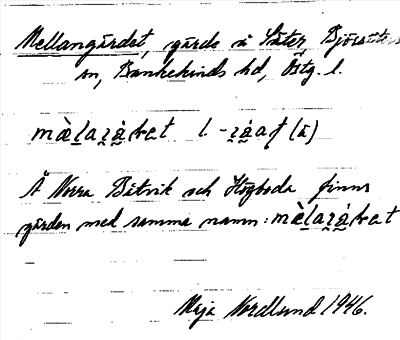 Mellangärdet, gärde å Säter, Björsäters
sn, Bankekinds hd, Östg. l.
mèlaʐá̤ bɐt l -ʐá̤at (ä)
Å Norra Båtvik och Högboda finns
gärden med samma namn: mèlaʐá̤ bɐt
Maja Nordlund 1946.